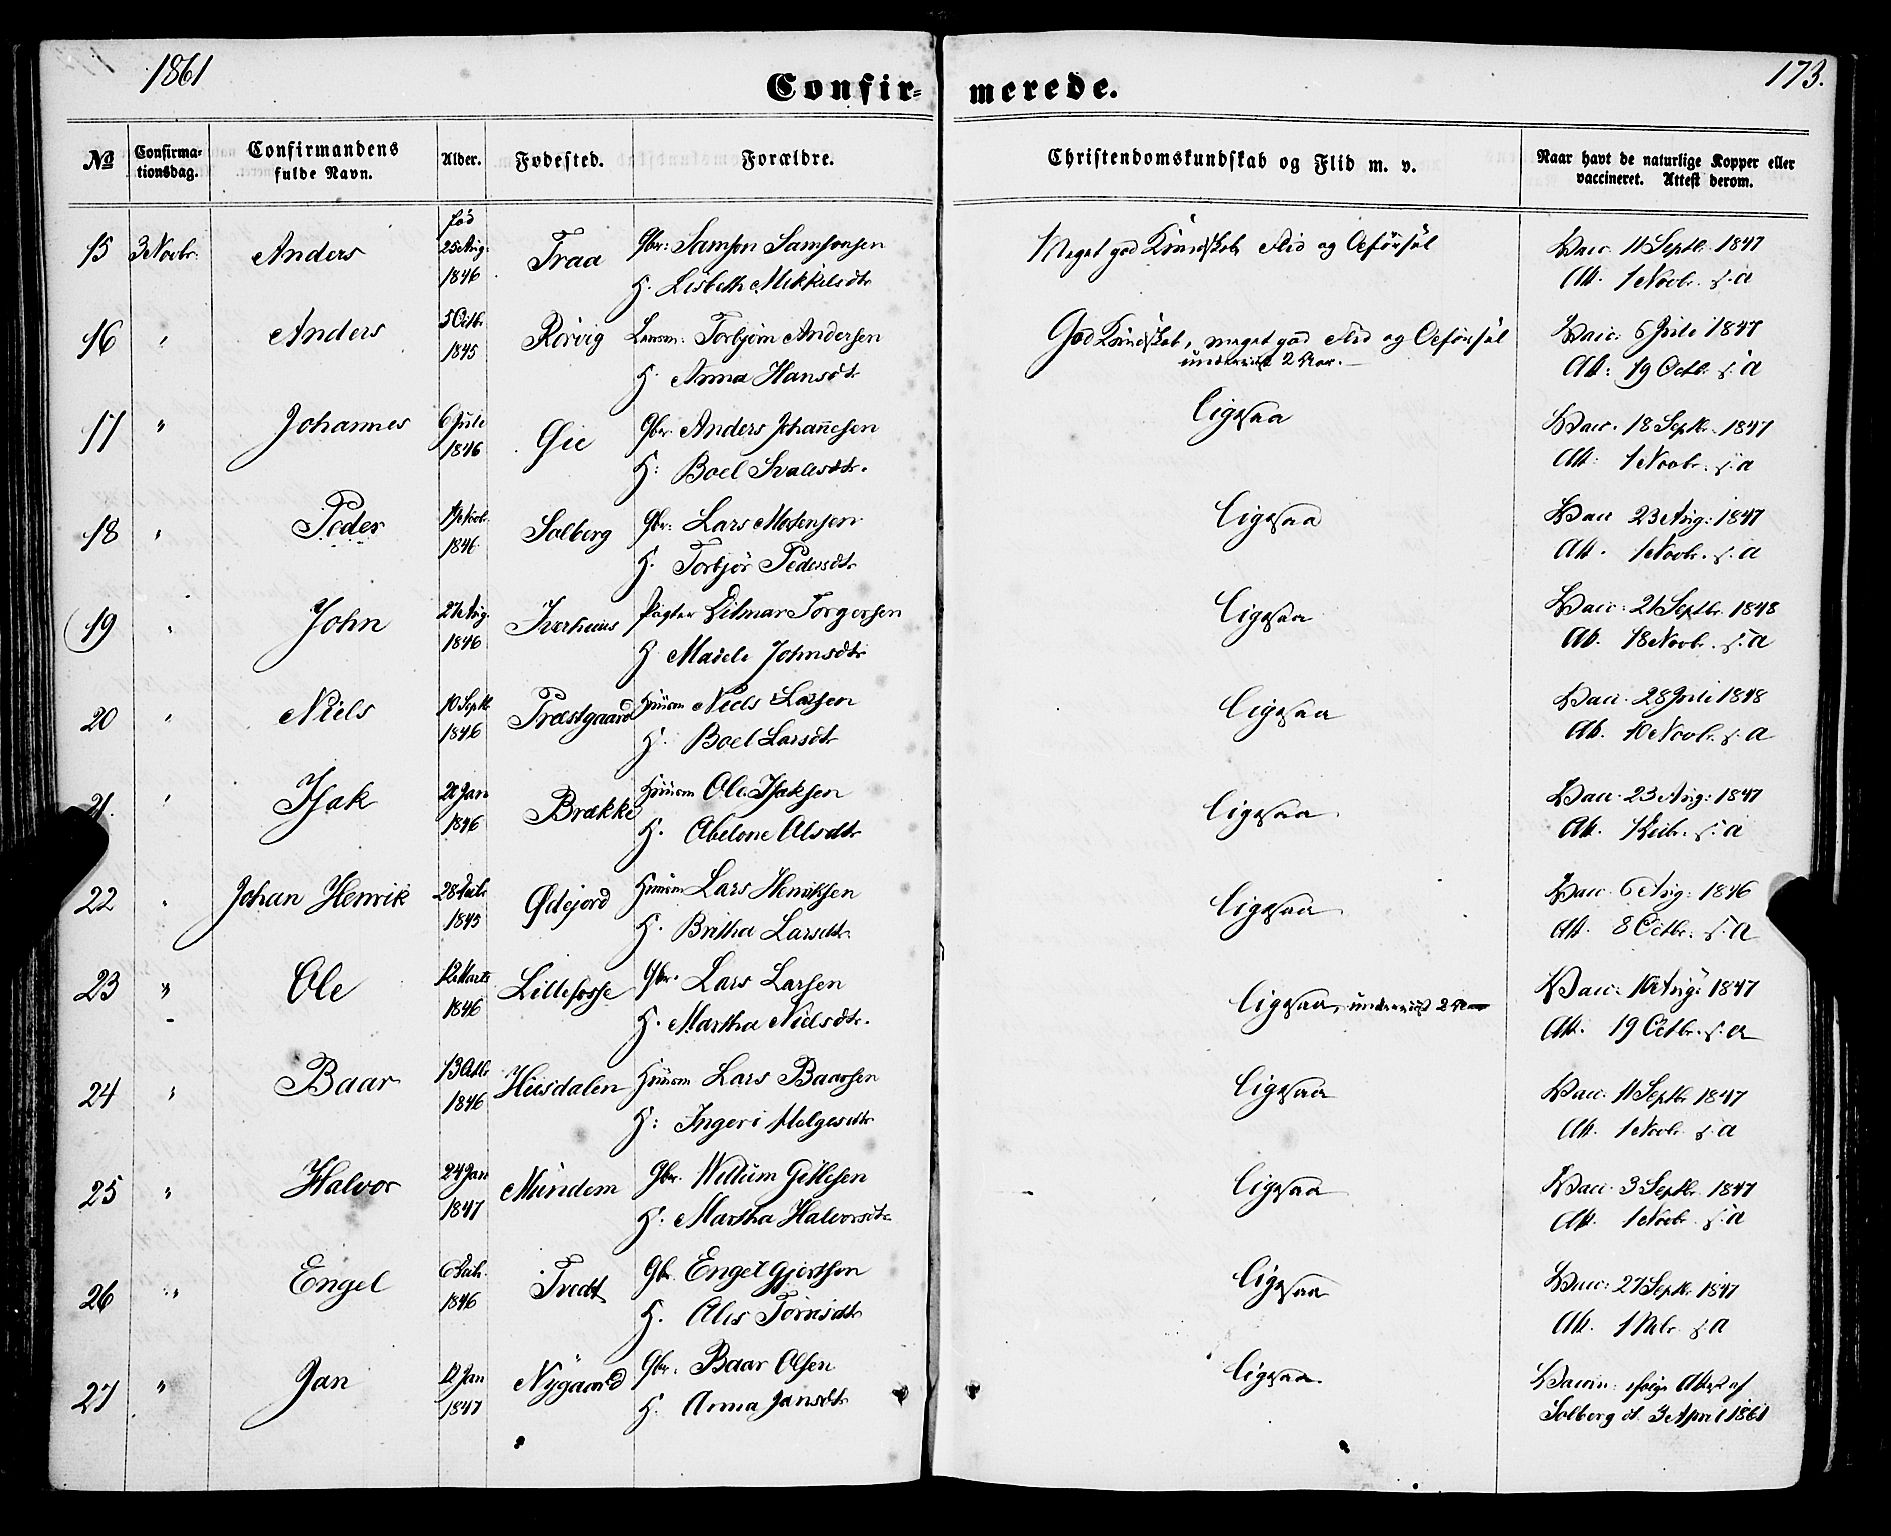 1861
173.
Confir-
merede.
№
Confirma-
tionsdag.
Confirmandens
fulde Navn.
Alder.
Fødested.
Forældre.
Christendomskundskab og Flid m. v.
Naar havt de naturlige Kopper eller
vaccineret. Attest derom.
15 3 Novbr: Anders fød 25 Aug: 1846 Traa Gbr: Samson Samsonsen
H. Lisbeth Mikkelsdtr
Meget god Kundskab Flid og Opførsel
Vacc. 11 Septbr 1847
Att. 1 Novbr. s: a
16 " Anders 5 Octbr 1845 Rørvig Lensm: Torbjørn Andersen
H. Anna Hansdtr
God Kundskab, meget god Flid og Opførsel
underviist 2 Aar.
Vacc: 6 Juli 1847
Att: 19 Octbr. s: a
17 " Johannes 6 Juli 1846 Øie Gbr. Anders Johannesen
H: Boel
Ligesaa
Vacc. 18 Septbr. 1847
Att: 1 Novbr. s: a
18 " Peder Novbr 1846 Solberg Gbr: Lars Mo sen
H. Torbjør Pedersdtr
Ligesaa
Vacc 23 Aug: 1847
Att. 1 Novbr. s: a
19 " John 27 Aug. 1846 Iverhuus Pagter Ditmar Torgersen
H Maele Johnsdtr
Ligesaa
Vacc: 21 Septbr. 1848
Att. 18 Novbr. s: a
20 " Niels 10 Septbr 1846 Præstgaard Huusm Niels Larsen
H. Boel Larsdtr
Ligesaa
Vacc. 28 Juli 1848
Att. 10 Novbr. s: a
21. " Isak Jan 1846 Brække Huusm Ole Isaksen
H. Abelone Olsdtr
Ligesaa.
Vacc. 23 Aug: 1847
Att. 1 s: a
22 " Johan Henrik 28 1845 Ødejord Huusm Lars Henriksen
H. Britha Larsdtr.
Ligesaa.
Vacc. 6 Aug: 1846
Att. 8 Octbr. s: a
23 " Ole 12 Marts 1846 Lillefosse Gbr. Lars Larsen
H. Martha Nielsdtr.
Ligesaa, underviist 2 Aar
Vacc: 10 Aug: 1847
Att. 19 Octbr. s. a
24 " Baar 13 Octbr 1846 Huusdalen Huusm Lars Baarsen
H: Ingeri Helgesdtr
Ligesaa
Vacc. 11 Septbr 1847
Att. 1 Novbr. s: a
25 " Halvor 24 Jan 1847 Mundem Gbr. Willum Gitlesen
H. Martha Halvorsdtr
Ligesaa
Vacc. 3 Septbr. 1847
Att. 1 Novbr. s: a
26 " Engel 6 1846 Tvedt Gbr. Engel Gjertsen
H. Ales
Ligesaa
Vacc: 27 Septbr. 1847
Att. 1 s: a
27 " Jan 12 Jan 1847 Nygaard Gbr. Baar Olsen
H. Anna Jansdtr
Ligesaa.
Vaccin: ifølge Attest af
Solberg d. 3 April 1861